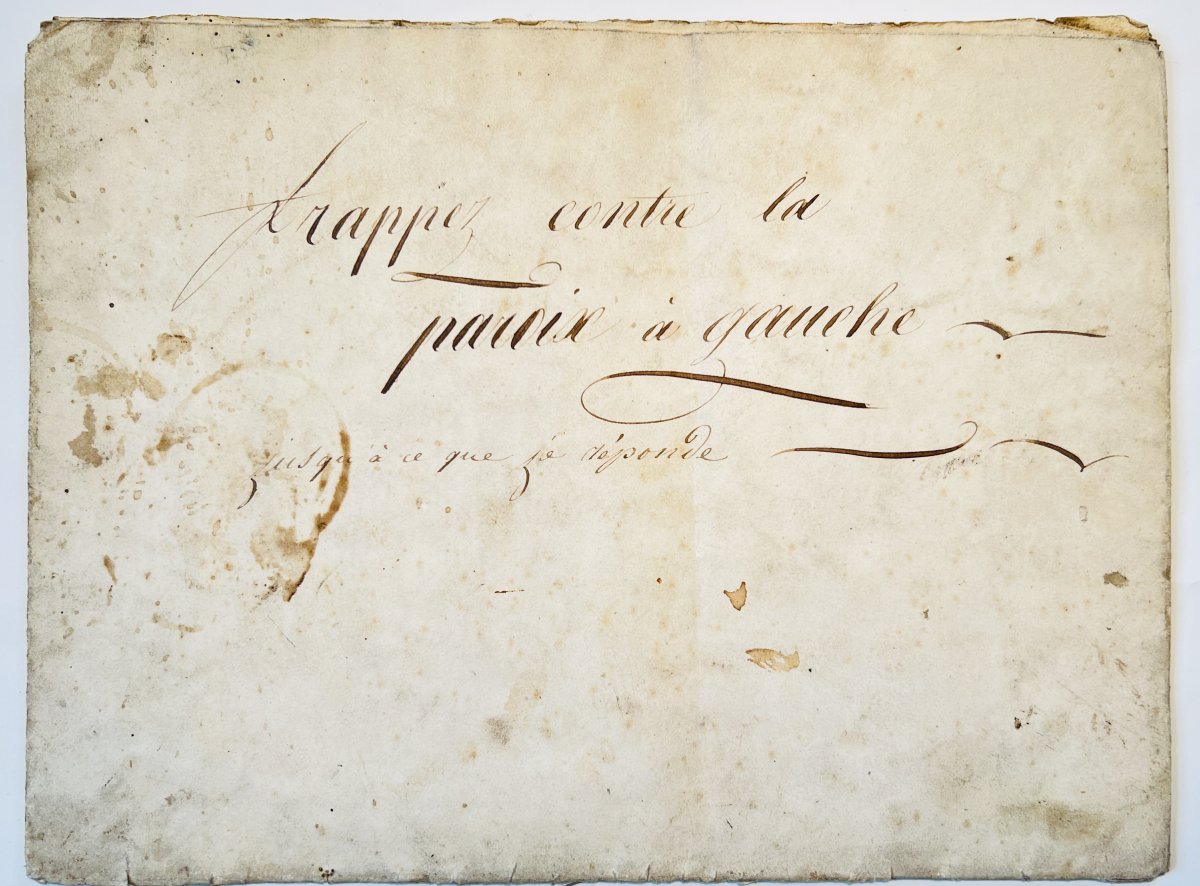 frappez contre la
paroix à gauche
jusqu'à ce que je déponde